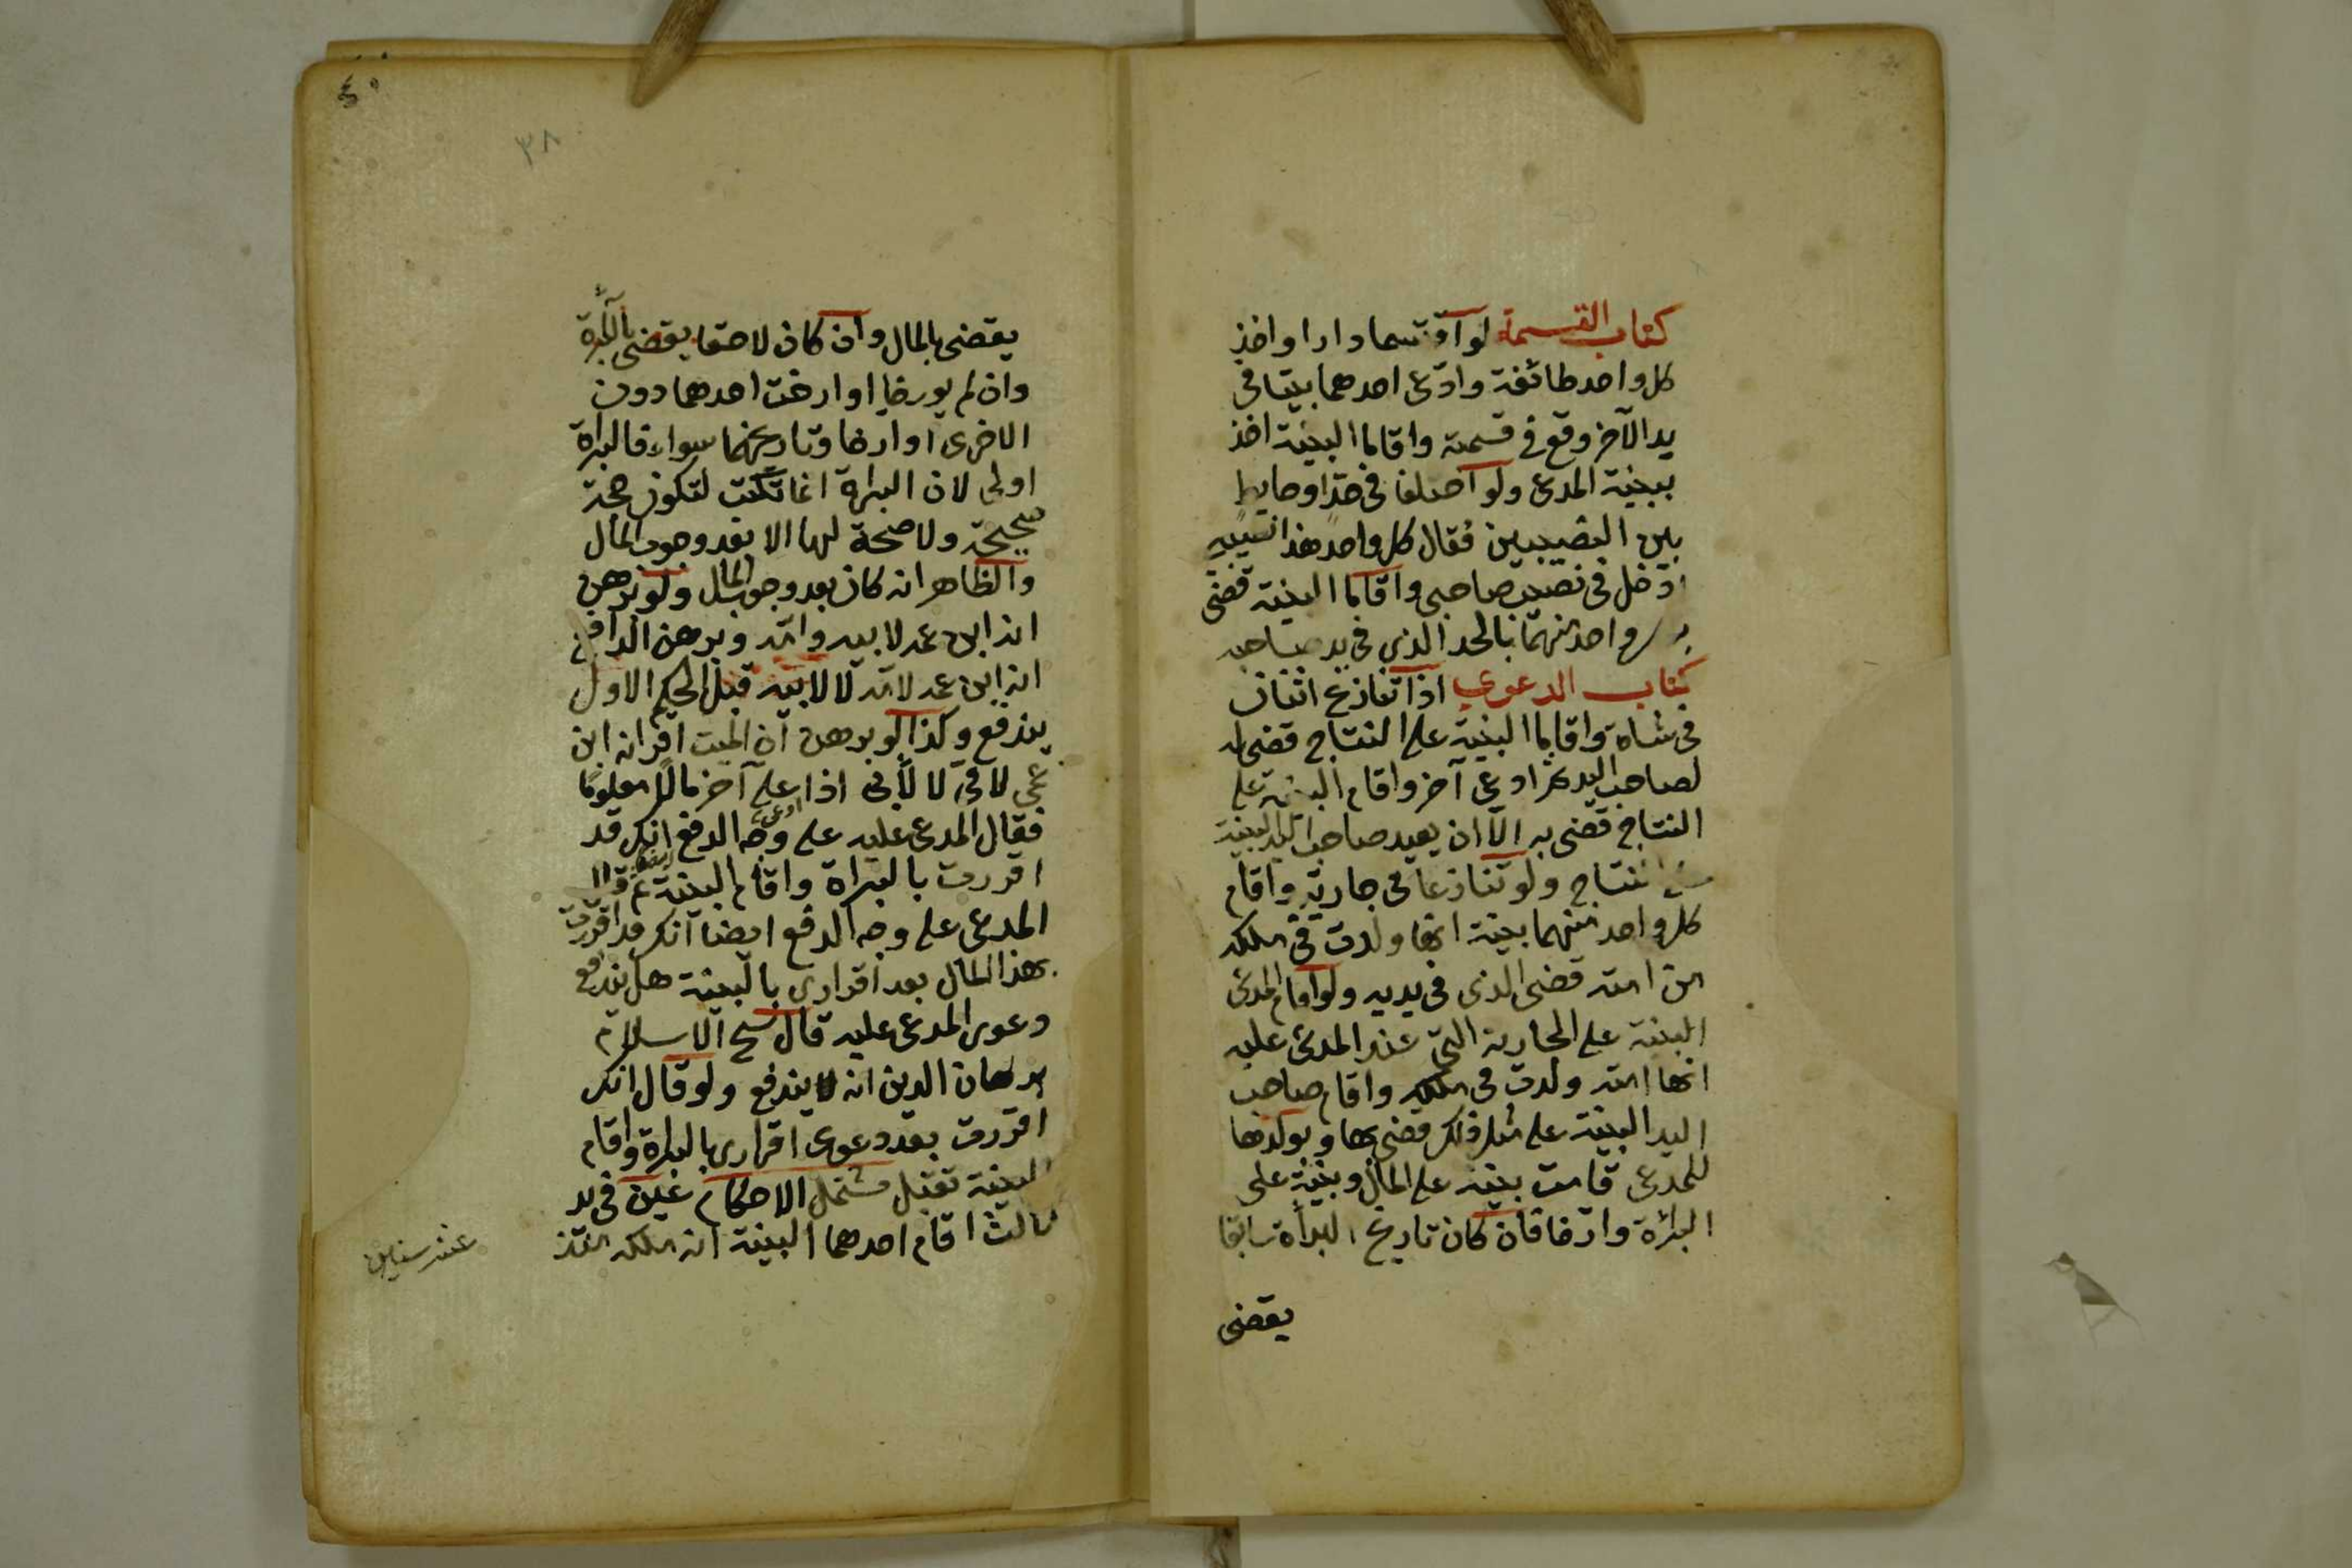 كتاب القسمة لو اقتسما دارا واخذ
كل واحد طائفة وادّعى احدهما بيتا في
يد الآخر وقع في قسمته واقاما البينة اخذ
ببينة المدعى ولو اختلفا في حدّ اوحايط
بين النصيبين فقال كل واحد هذا نصيبى
ادخل في نصيب صاحبى واقاما البينة قضى
واحد منهما بالحد الذي في يد صاحبه
كتاب الدعوى اذا تنازع اثنان
في شاة واقاما البينة على النتاج قضى به
لصاحب اليد ثم ادعى آخر واقام البينة على
النتاج قضى به الّا ان يعيد صاحب اليد البينة
النتاج ولو تنازعا في جارية واقام
كل واحد منهما بينة انها ولدت في ملكه
من امته قضى الذى في يديه ولو اقام المدعى
البينة على الجارية التى عند المدعى عليه
انها امته ولدت في ملكه واقام صاحب
اليد البينة على مثل ذلك قضى بها وبولدها
للمدعى قامت بينة على المال وبينة على
البرائة وارّخا فان كان تاريخ البراة سابقا
يقضى
٤٠
٣٨
يقضى بالمال وان كان لاحقا يقضى بالبراة
وان لم يورخا او ارخت احدهما دون
الاخرى او ارخا وتاريخهما سواء فالبراة
اولى لان البراة انما تكتب لتكون حجة
صحيحة ولا صحة لها الا بعد وجوب المال
والظاهر انه كان بعد وجوب المال ولو برهن
انه ابن عمه لابيه وامّه وبرهن الدافع
انه ابن عمه لامّه لا لابيه قبل الحكم الاول
يندفع وكذا لو برهن ان الميت اقر انه ابن
عمى لامّى لا لأبى اذا ادعى على آخر مالًا معلومًا
فقال المدعى عليه على وجه الدفع انك قد
اقررت بالبراة واقام البينة ثم قال
المدعى على وجه الدفع ايضا انك قد اقررت
بهذا المال بعد اقرارى بالبينة هل يندفع
دعوى المدعى عليه قال شيخ الاسلام
برهان الدين انه لا يندفع ولو قال انك
اقررت بعد دعوى اقرارى بالبراة واقام
البينة تقبل مشتمل الاحكام عين في يد
ثالث اقام احدهما البينة انه ملكه منذ